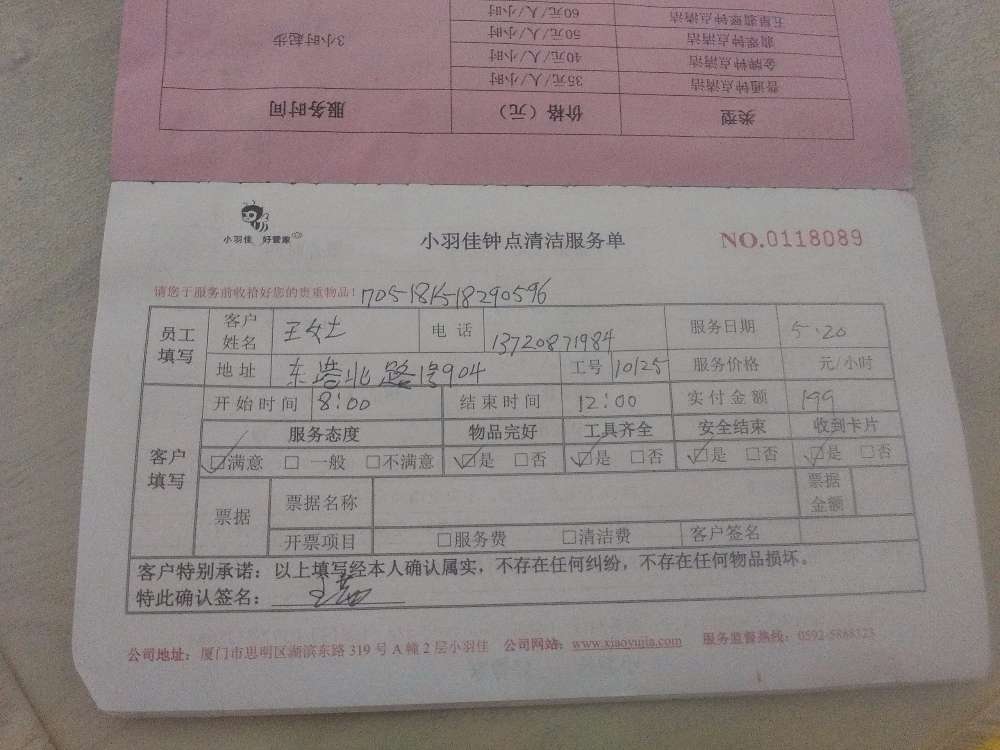 五星翡翠钟点清洁 60元/人/小时
翡翠钟点清洁 50元/人/小时 3小时起步
金牌钟点清洁 40元/人/小时
普通钟点清洁 35元/人/小时
类型 价格（元） 服务时间
小羽佳 好管家
小羽佳钟点清洁服务单
NO.0118089
请您于服务前收拾好您的贵重物品！
员工填写 客户姓名 王女士 电话 13720871984 服务日期 5.20
地址 东港北路1号904 工号 10125 服务价格 元/小时
开始时间 8:00 结束时间 12:00 实付金额 199
客户填写 服务态度 物品完好 工具齐全 安全结束 收到卡片
☑满意 □ 一般 □不满意 ☑是 □否 ☑是 □否 ☑是 □否 ☑是 □否
票据 票据名称 票据金额
开票项目 □服务费 □清洁费 客户签名
客户特别承诺：以上填写经本人确认属实，不存在任何纠纷，不存在任何物品损坏。
特此确认签名：
公司地址：厦门市思明区湖滨东路 319 号 A 幢 2 层小羽佳 公司网站：www.xiaoyujia.com 服务监督热线：